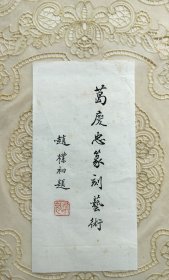 葛慶忠篆刻藝術
趙樸初題